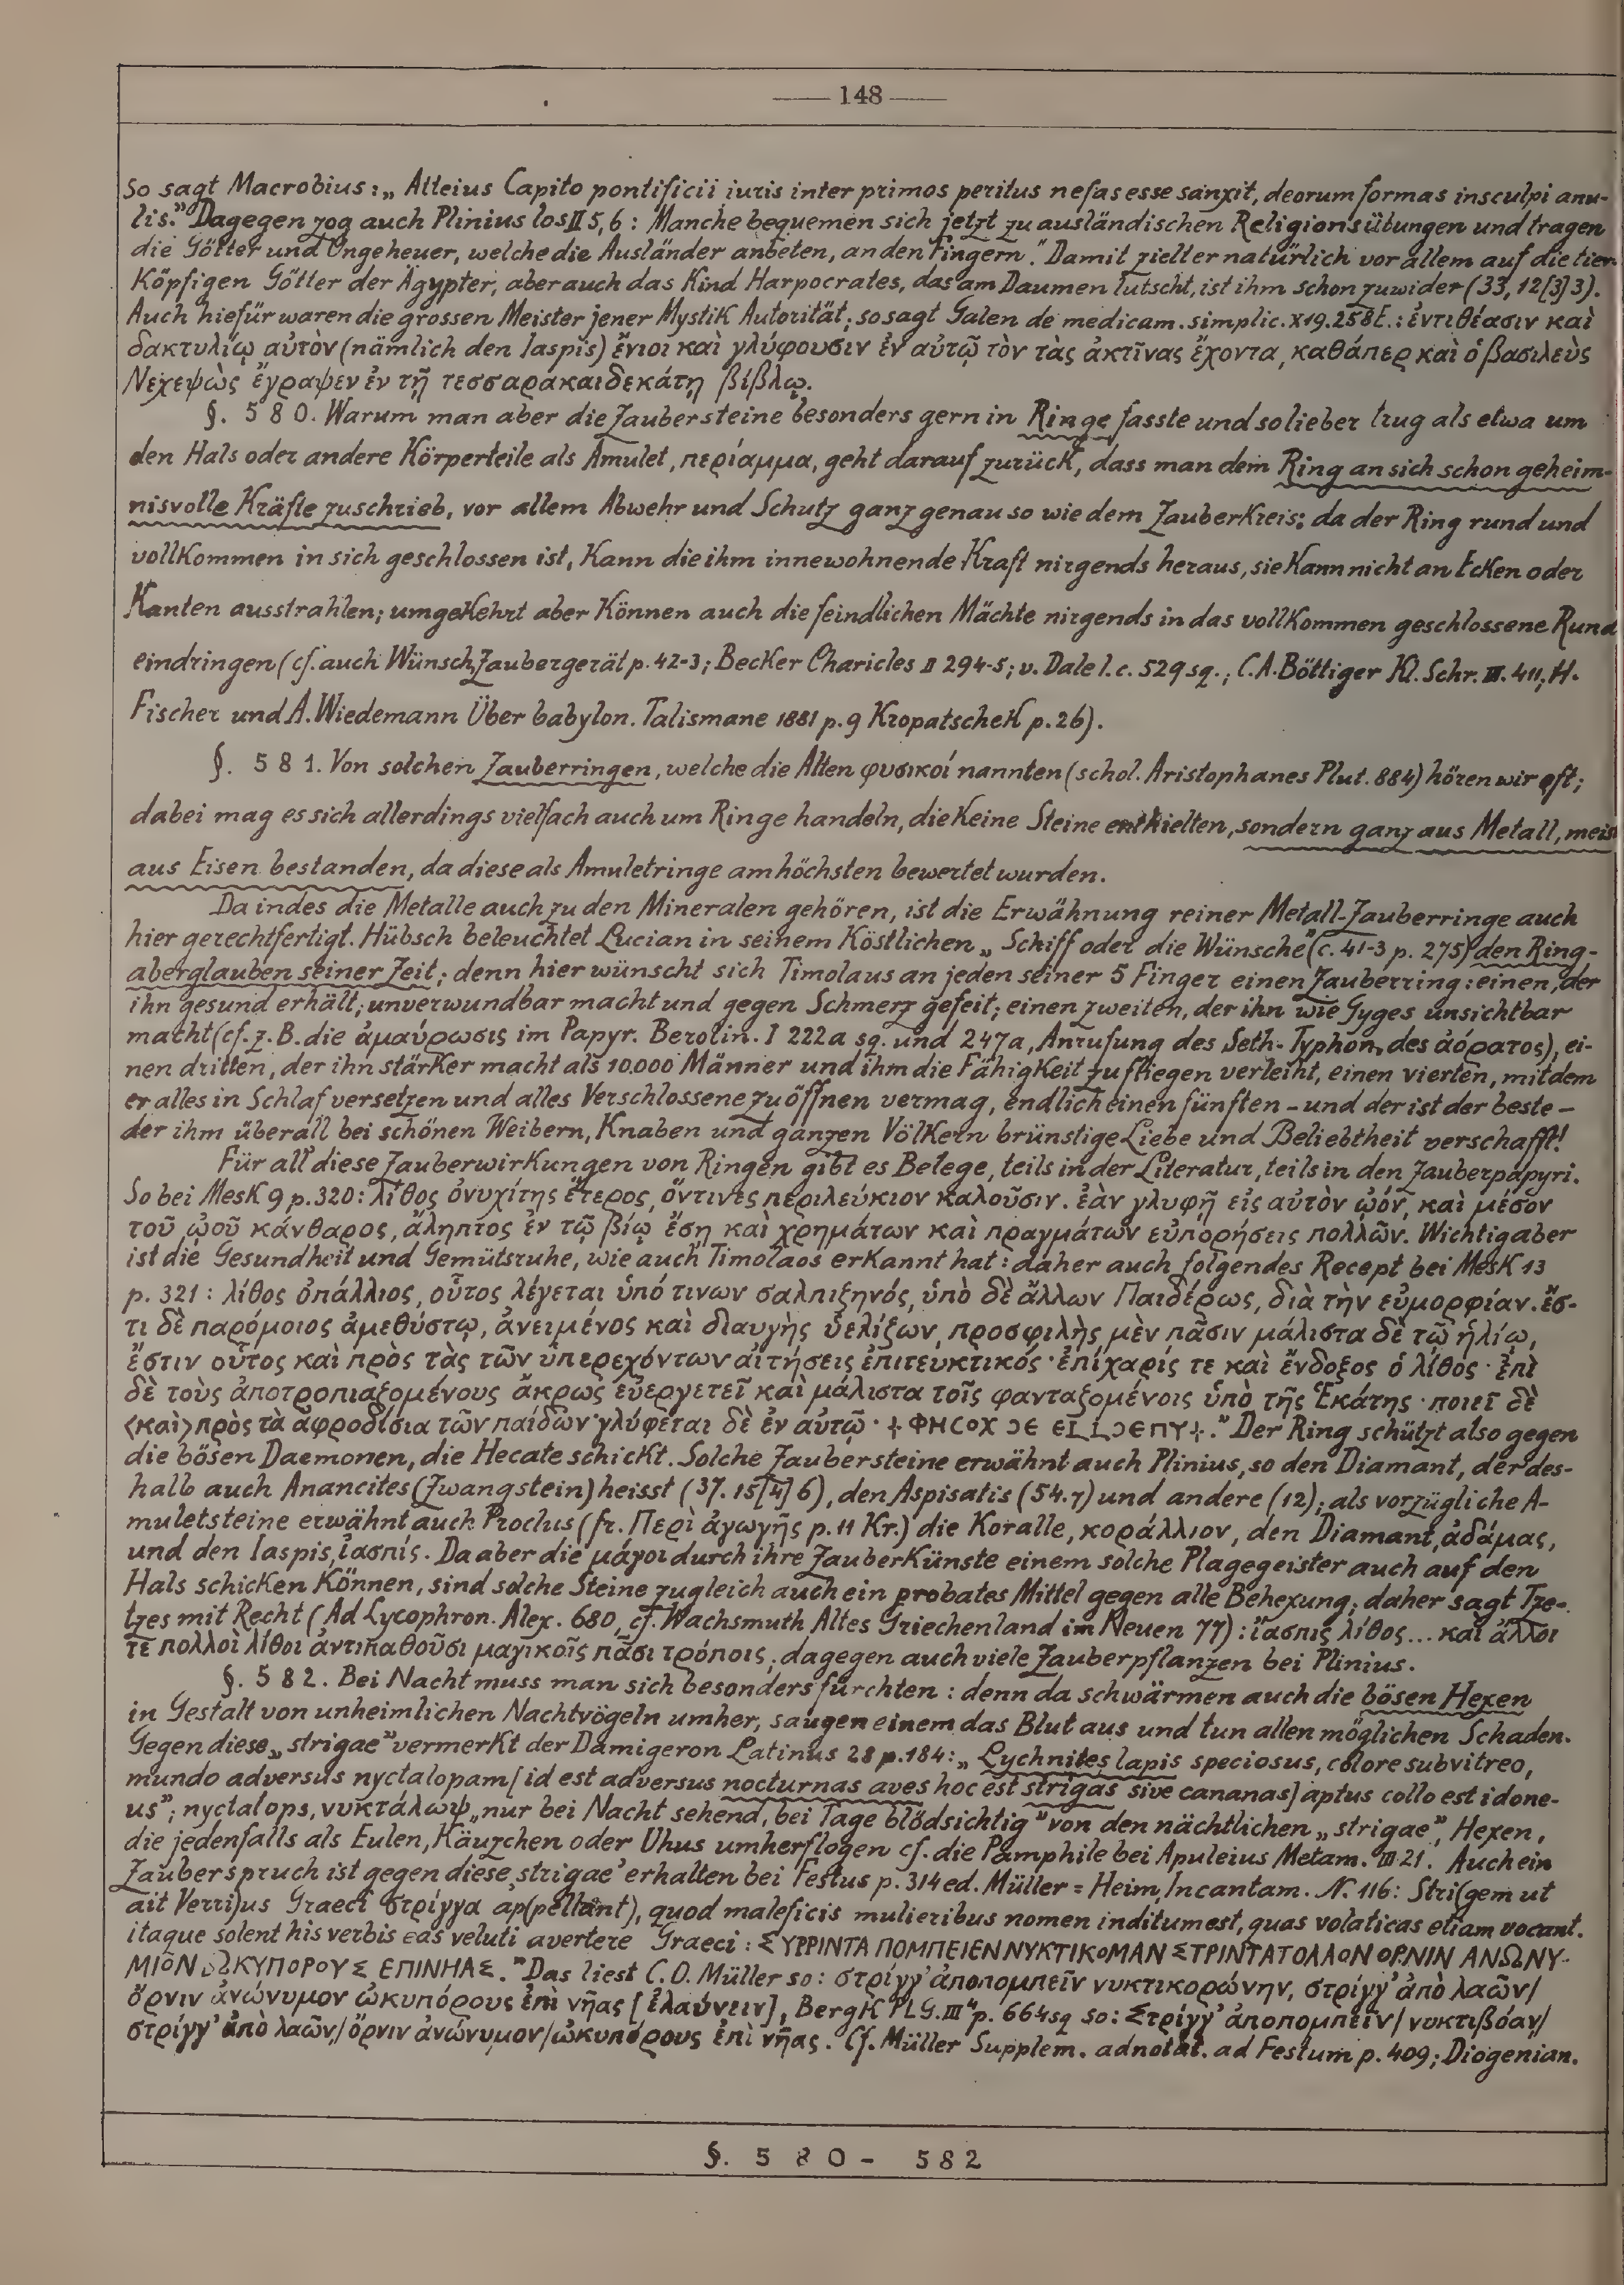 — 148 —
So sagt Macrobius: „Atteius Capito pontificii iuris inter primos peritus nefas esse sanxit, deorum formas insculpi anu-
lis." Dagegen zog auch Plinius los II 5,6: Manche bequemen sich jetzt zu ausländischen Religionsübungen und tragen
die Götter und Ungeheuer, welche die Ausländer anbeten, an den Fingern." Damit zielt er natürlich vor allem auf die tier-
Köpfigen Götter der Ägypter, aber auch das Kind Harpocrates, das am Daumen lutscht, ist ihm schon zuwider (33, 12[3]3).
Auch hiefür waren die grossen Meister jener Mystik Autorität; so sagt Galen de medicam. simplic. X 19. 258 E.: ἐντιθέασιν καὶ
δακτυλίῳ αὐτὸν (nämlich den Iaspis) ἔνιοι καὶ γλύφουσιν ἐν αὐτῷ τὸν τὰς ἀκτῖνας ἔχοντα, καθάπερ καὶ ὁ βασιλεὺς
Νεχεψὼς ἔγραψεν ἐν τῇ τεσσαρακαιδεκάτῃ βίβλῳ.
§. 580. Warum man aber die Zaubersteine besonders gern in Ringe fasste und so lieber trug als etwa um
den Hals oder andere Körperteile als Amulet, περίαμμα, geht darauf zurück, dass man dem Ring an sich schon geheim-
nisvolle Kräfte zuschrieb, vor allem Abwehr und Schutz ganz genau so wie dem Zauberkreis; da der Ring rund und
vollkommen in sich geschlossen ist, kann die ihm innewohnende Kraft nirgends heraus, sie kann nicht an Ecken oder
Kanten ausstrahlen; umgekehrt aber können auch die feindlichen Mächte nirgends in das vollkommen geschlossene Rund
eindringen (cf. auch Wünsch, Zaubergerät p. 42-3; Becker Charicles II 294-5; v. Dale l. c. 529 sq.; C. A. Böttiger Kl. Schr. III. 411, H.
Fischer und A. Wiedemann Über babylon. Talismane 1881 p. 9 Kropatschek p. 26).
§. 581. Von solchen Zauberringen, welche die Alten φυσικοί nannten (schol. Aristophanes Plut. 884) hören wir oft;
dabei mag es sich allerdings vielfach auch um Ringe handeln, die keine Steine enthielten, sondern ganz aus Metall, meist
aus Eisen bestanden, da diese als Amuletringe am höchsten bewertet wurden.
Da indes die Metalle auch zu den Mineralen gehören, ist die Erwähnung reiner Metall-Zauberringe auch
hier gerechtfertigt. Hübsch beleuchtet Lucian in seinem köstlichen „Schiff oder die Wünsche" (c. 41-3 p. 275) den Ring-
aberglauben seiner Zeit; denn hier wünscht sich Timolaus an jeden seiner 5 Finger einen Zauberring: einen, der
ihn gesund erhält, unverwundbar macht und gegen Schmerz gefeit; einen zweiten, der ihn wie Gyges unsichtbar
macht (cf. z. B. die ἀμαύρωσις im Papyr. Berolin. I 222a sq. und 247a, Anrufung des Seth-Typhon, des ἀόρατος), ei-
nen dritten, der ihn stärker macht als 10.000 Männer und ihm die Fähigkeit zu fliegen verleiht, einen vierten, mit dem
er alles in Schlaf versetzen und alles Verschlossene zu öffnen vermag, endlich einen fünften – und der ist der beste –
der ihm überall bei schönen Weibern, Knaben und ganzen Völkern brünstige Liebe und Beliebtheit verschafft!
Für all diese Zauberwirkungen von Ringen gibt es Belege, teils in der Literatur, teils in den Zauberpapyri.
So bei MesK 9 p. 320: λίθος ὀνυχίτης ἕτερος, ὅντινες περιλεύκιον καλοῦσιν. ἐὰν γλυφῇ εἰς αὐτὸν ᾠόν, καὶ μέσον
τοῦ ᾠοῦ κάνθαρος, ἄληπτος ἐν τῷ βίῳ ἔσῃ καὶ χρημάτων καὶ πραγμάτων εὐπορήσεις πολλῶν. Wichtig aber
ist die Gesundheit und Gemütsruhe, wie auch Timolaos erkannt hat: daher auch folgendes Recept bei MesK 13
p. 321: λίθος ὀπάλλιος, οὗτος λέγεται ὑπό τινων σαλπιξηνός, ὑπὸ δὲ ἄλλων Παιδέρως, διὰ τὴν εὐμορφίαν. ἔσ-
τι δὲ παρόμοιος ἀμεθύστῳ, ἀνειμένος καὶ διαυγὴς ὑελίζων, προσφιλὴς μὲν πᾶσιν μάλιστα δὲ τῷ ἡλίῳ,
ἔστιν οὗτος καὶ πρὸς τὰς τῶν ὑπερεχόντων αἰτήσεις ἐπιτευκτικός· ἐπίχαρίς τε καὶ ἔνδοξος ὁ λίθος· ἐπὶ
δὲ τοὺς ἀποτροπιαζομένους ἄκρως εὐεργετεῖ καὶ μάλιστα τοῖς φανταζομένοις ὑπὸ τῆς Ἑκάτης· ποιεῖ δὲ
〈καὶ〉 πρὸς τὰ ἀφροδίσια τῶν παίδων· γλύφεται δὲ ἐν αὐτῷ· Der Ring schützt also gegen
die bösen Daemonen, die Hecate schickt. Solche Zaubersteine erwähnt auch Plinius, so den Diamant, der des-
halb auch Anancites (Zwangstein) heisst (37. 15[4]6), den Aspisatis (54.7) und andere (12); als vorzügliche A-
muletsteine erwähnt auch Proclus (fr. Περὶ ἀγωγῆς p. 11 Kr.) die Koralle, κοράλλιον, den Diamant, ἀδάμας,
und den Iaspis, ἰασπίς. Da aber die μάγοι durch ihre Zauberkünste einem solche Plagegeister auch auf den
Hals schicken können, sind solche Steine zugleich auch ein probates Mittel gegen alle Behexung; daher sagt Tze-
tzes mit Recht (Ad Lycophron. Alex. 680, cf. Wachsmuth Altes Griechenland im Neuen 77): ἴασπις λίθος... καὶ ἄλλοι
τε πολλοὶ λίθοι ἀντιπαθοῦσι μαγικοῖς πᾶσι τρόποις; dagegen auch viele Zauberpflanzen bei Plinius.
§. 582. Bei Nacht muss man sich besonders fürchten: denn da schwärmen auch die bösen Hexen
in Gestalt von unheimlichen Nachtvögeln umher, saugen einem das Blut aus und tun allen möglichen Schaden.
Gegen diese „strigae" vermerkt der Damigeron Latinus 28 p. 184: „Lychnites lapis speciosus, colore subvitreo,
mundo adversus nyctalopam [id est adversus nocturnas aves hoc est strigas sive cananas] aptus collo est idone-
us"; nyctalops, νυκτάλωψ „nur bei Nacht sehend, bei Tage blödsichtig" von den nächtlichen „strigae", Hexen,
die jedenfalls als Eulen, Käuzchen oder Uhus umherflogen cf. die Pamphile bei Apuleius Metam. III 21. Auch ein
Zauberspruch ist gegen diese ‚strigae' erhalten bei Festus p. 314 ed. Müller = Heim, Incantam. N. 116: Stri(gem ut
ait Verri)us Graeci στρίγγα ap(pellant), quod maleficis mulieribus nomen inditum est, quas volaticas etiam vocant.
itaque solent his verbis eas veluti avertere Graeci: ΣΥΡΡΙΝΤΑ ΠΟΜΠΕΙΕΝ ΝΥΚΤΙΚΟΜΑΝ ΣΤΡΙΝΤΑΤΟΛΑΟΝ ΟΡΝΙΝ ΑΝΩΝΥ-
ΜΙΟΝ ΩΚΥΠΟΡΟΥΣ ΕΠΙΝΗΑΣ." Das liest C. O. Müller so: στρίγγ' ἀποπομπεῖν νυκτικορώνην, στρίγγ' ἀπὸ λαῶν/
ὄρνιν ἀνώνυμον ὠκυπόρους ἐπὶ νῆας [ἐλαύνειν], Bergk PLG. III⁴ p. 664 sq so: Στρίγγ' ἀποπομπεῖν/ νυκτιβόαν/
στρίγγ' ἀπὸ λαῶν/ ὄρνιν ἀνώνυμον/ ὠκυπόρους ἐπὶ νῆας. Cf. Müller Supplem. adnotat. ad Festum p. 409; Diogenian.
§. 580 - 582